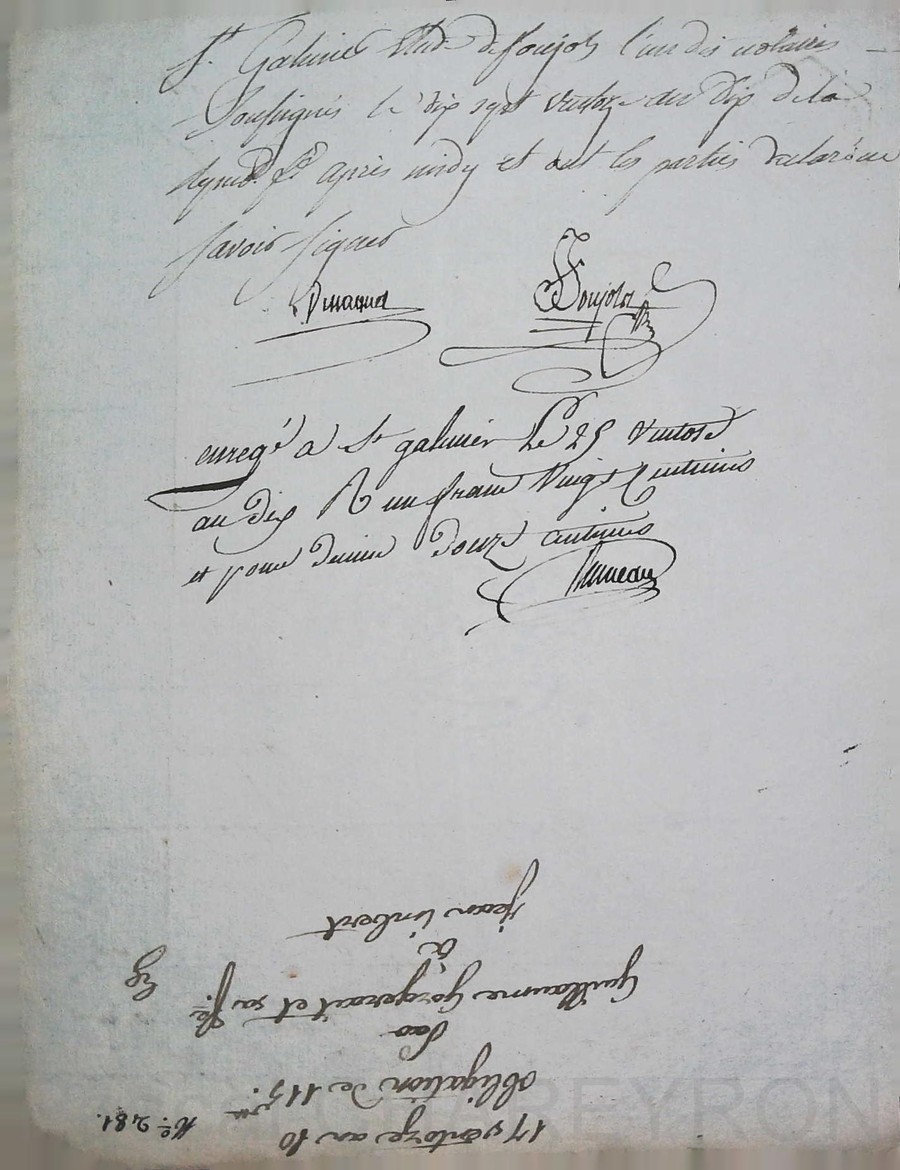 St. Galmier Etude de Soujols l'un des notaires
Soussignés le dix sept ventoze an dix de la
Répub. fse après midy et ont les parties declaré ne
savoir signer
Soujolz
enregé a St galmier Le 25 ventose
an dix R un franc Vingt Centimes
et pour Decime Douze centimes
17 ventoze an 10
No. 281.
obligation de 115.
Par
Guillaume Gorgerait et sa fe
à
jean imbert
PEYRON